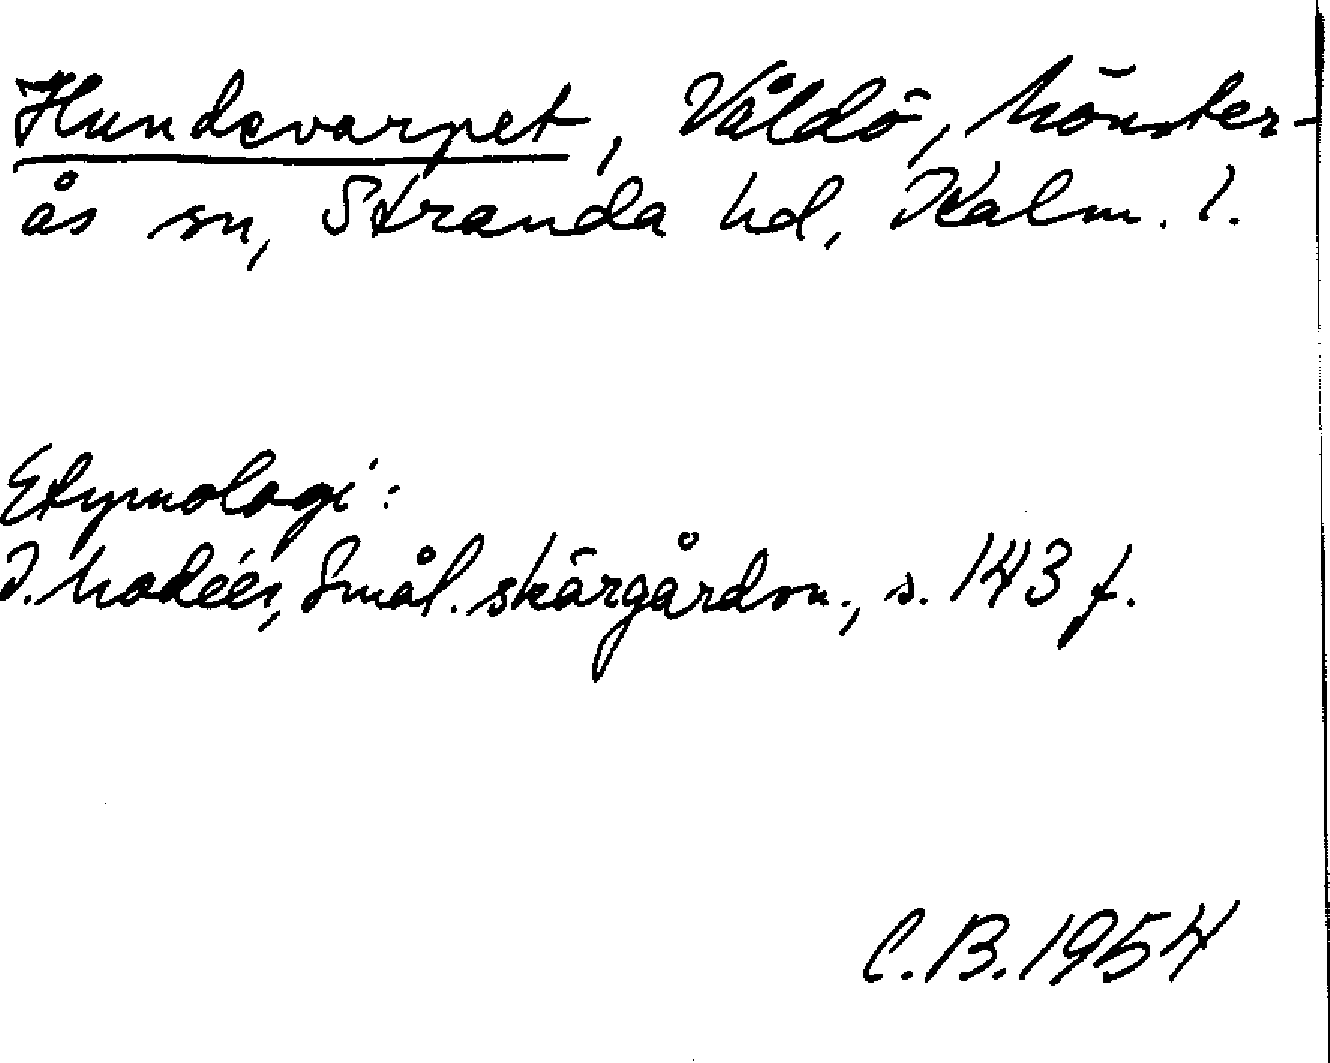 Hundevarpet, Våldö, Mönster-
ås sn, Stranda hd, Kalm. l.
Etymologi:
I. Modéer, Smål. skärgårdsn., s. 143 f.
C.B. 1954